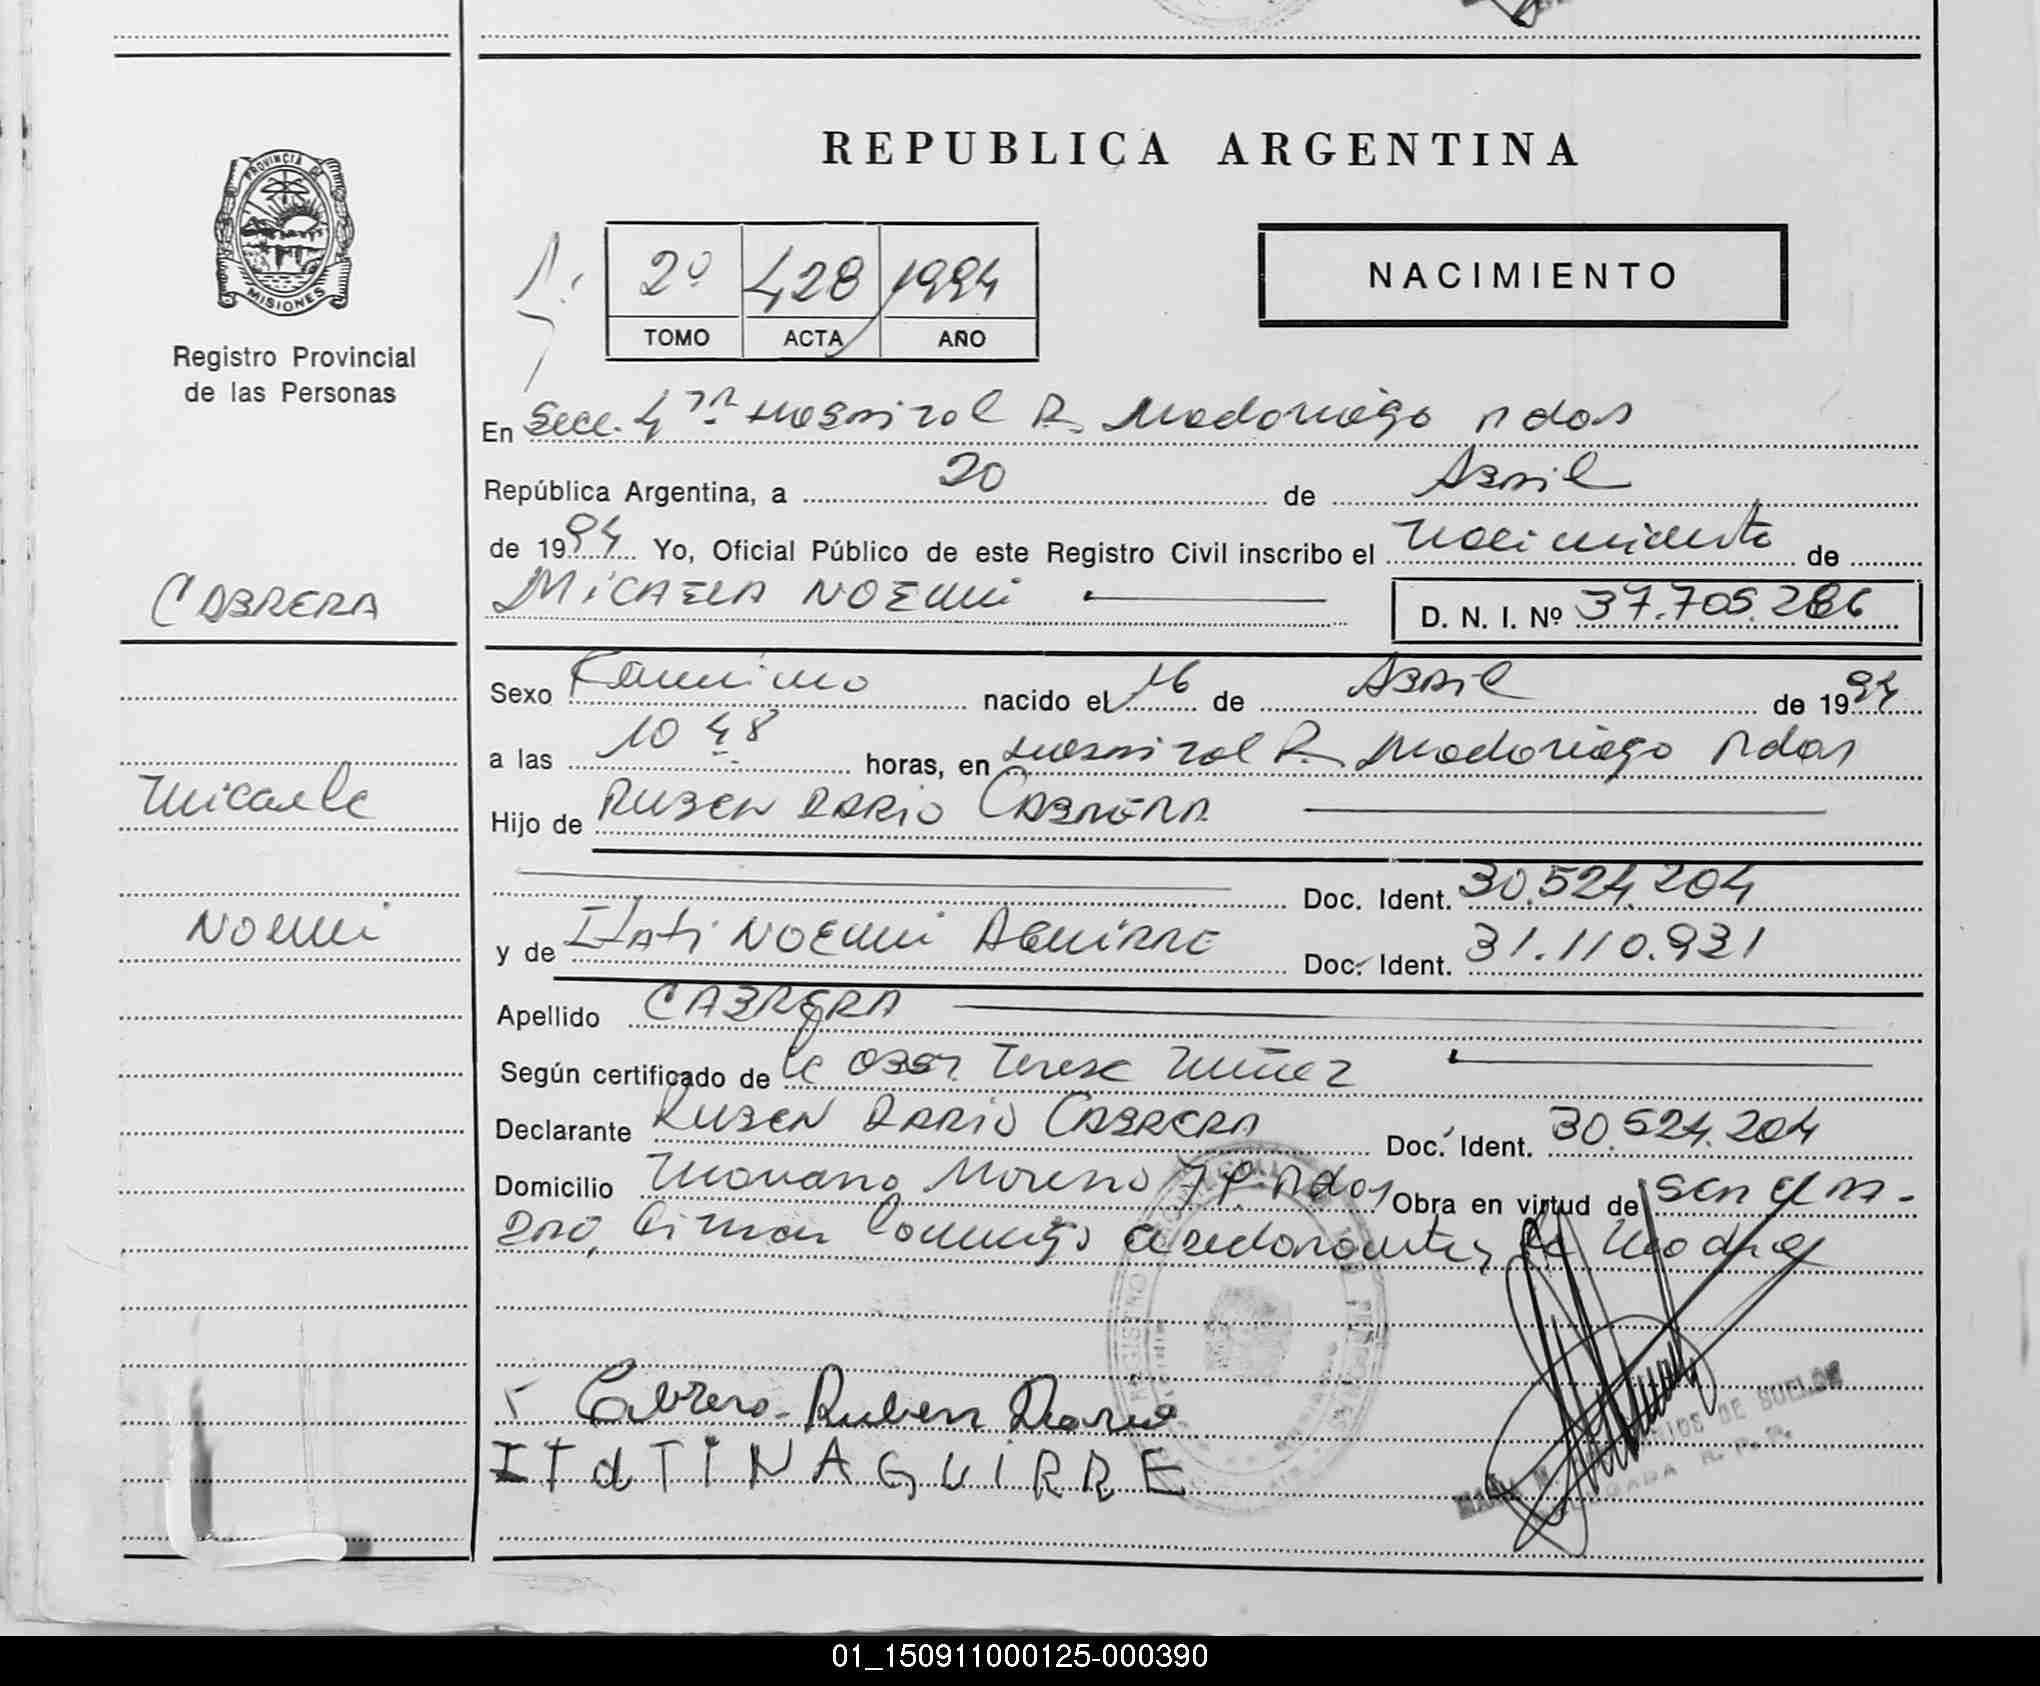 REPUBLICA ARGENTINA
PROVINCIA DE
MISIONES
Registro Provincial
de las Personas
2º 428 1994
TOMO ACTA AÑO
NACIMIENTO
En Secc. 4ta Hospital R. Madariaga Pdas
República Argentina, a 20 de Abril
de 1994 Yo, Oficial Público de este Registro Civil inscribo el Nacimiento de
CABRERA
MICAELA NOEMI D. N. I. Nº 37.705.286
Sexo Femenino nacido el 16 de Abril de 1994
a las 10 48 horas, en Hospital R. Madariaga Pdas
Micaela
Hijo de RUBEN DARIO CABRERA
Doc. Ident. 30.524.204
Noemi
y de Itati NOEMI AGUIRRE Doc. Ident. 31.110.931
Apellido CABRERA
Según certificado de la Obst. Teresa Nuñez
Declarante RUBEN DARIO CABRERA Doc. Ident. 30.524.204
Domicilio Mariano Moreno Pdas Obra en virtud de ser el pa-
dre, firman conmigo el declarante y la Madre
Cabrera Ruben Dario
ITATI N AGUIRRE
DE SUELDO
DELEGADA R. P. P.
01_150911000125-000390